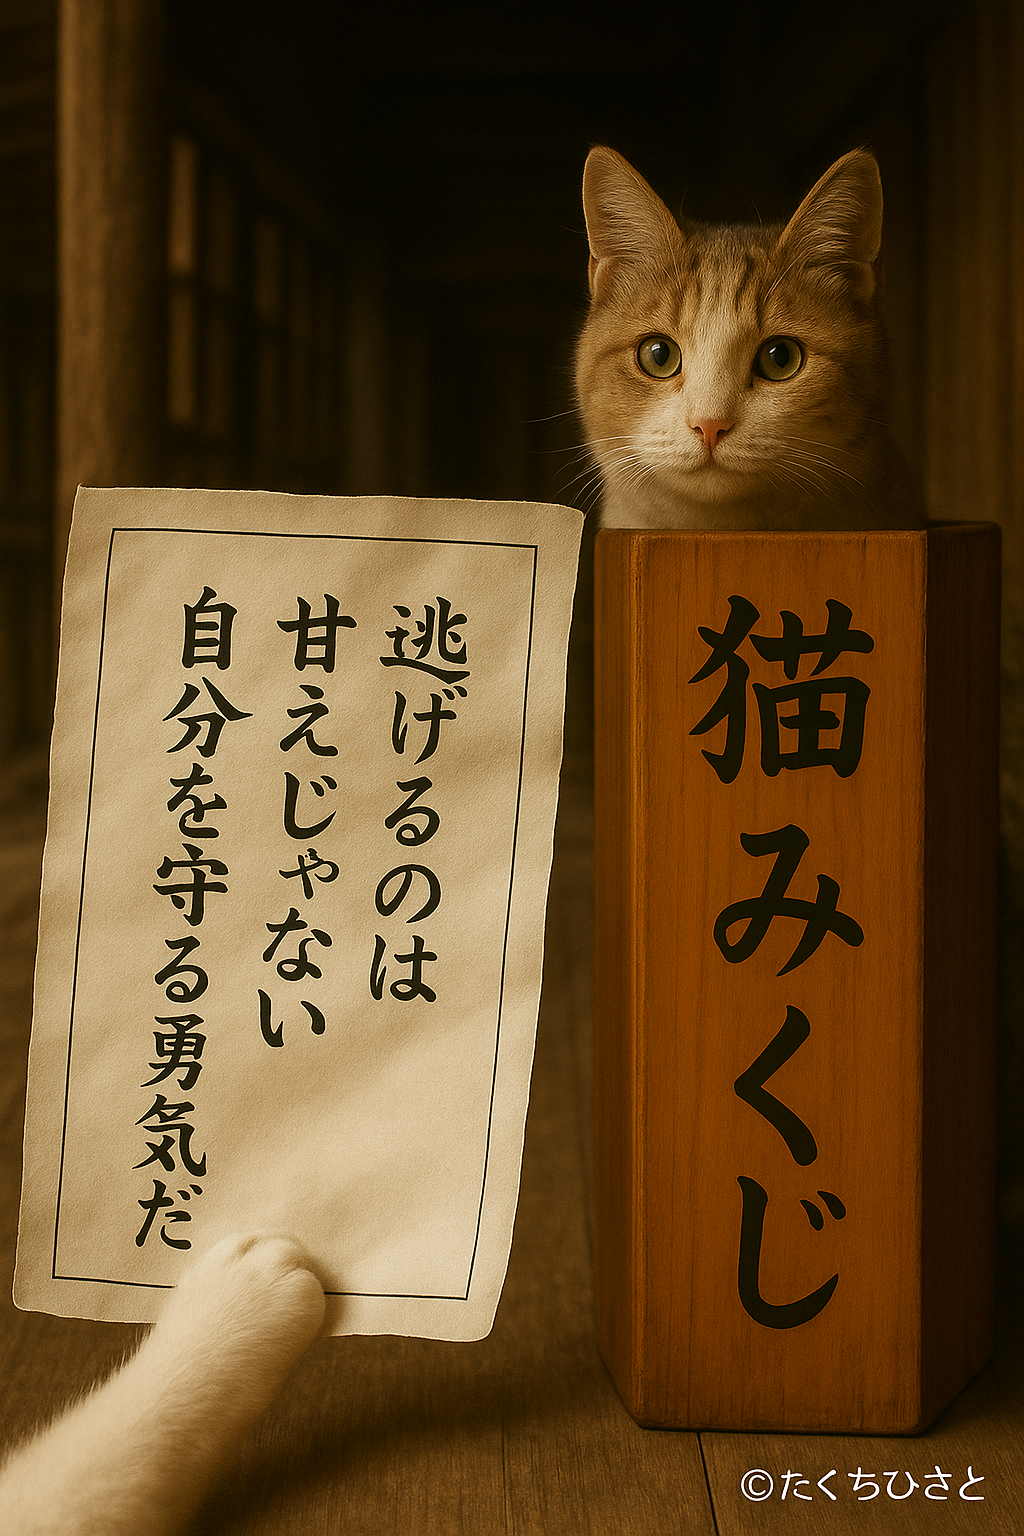 逃げるのは
甘えじゃない
自分を守る勇気だ
猫みくじ
©たくちひさと